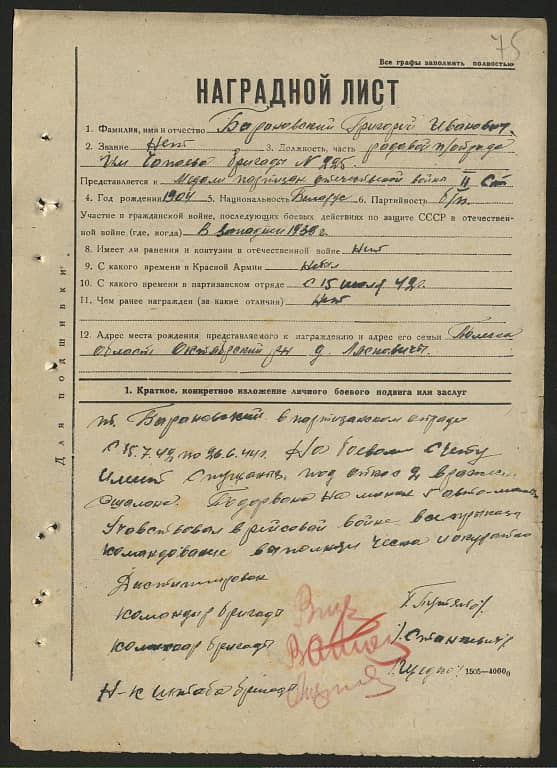 75
Все графы заполнить полностью
НАГРАДНОЙ ЛИСТ
1. Фамилия, имя и отчество Барановский Григорий Иванович
2. Звание Нет 3. Должность, часть рядовой п/отряда
им Чапаева Бригады № 225.
Представляется к Медали партизан отечественной война II Ст
4. Год рождения 1904 5. Национальность Белорус 6. Партийность б/п
Участие в гражданской войне, последующих боевых действиях по защите СССР в отечествен-
ной войне (где, когда) В Западной 1939 г.
8. Имеет ли ранения и контузии в отечественной войне Нет
9. С какого времени в Красной Армии
10. С какого времени в партизанском отряде с 15 июля 42 г.
11. Чем ранее награжден (за какие отличия) Нет
12. Адрес места рождения представляемого к награждению и адрес его семьи Полеска
область Октябрский рн д. Лясковичи.
Для подшивки
1. Краткое, конкретное изложение личного боевого подвига или заслуг
тт. Барановский в партизанском отряде
с 15.7.42 по 26.6.44 г. На боевом счету
имеет спущанты, под откос 2 вражес.
эшалона. Подорвана на минах 5 автомашин
Учавствовал в рельсовой войне. Все приказы
командование выполнял честна и акуратно
Дистиплирован
Командир Бригады
Комиссар Бригады /Станкевич/
Н-к штаба Бригады
1505-4000